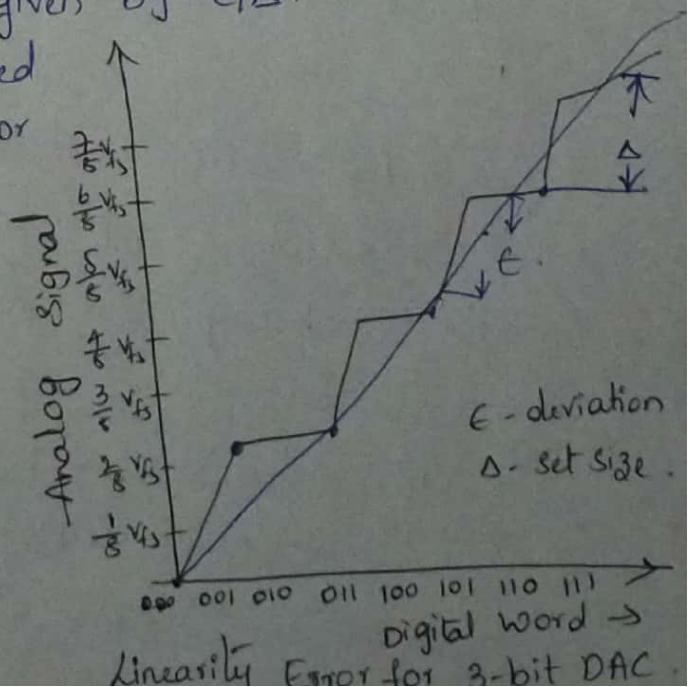 given by
ed
or
7/8 Vfs
6/8 Vfs
5/8 Vfs
4/8 Vfs
3/8 Vfs
2/8 Vfs
1/8 Vfs
Analog Signal
Δ
ϵ.
ϵ - deviation
Δ - Set size.
000 001 010 011 100 101 110 111
Digital Word →
Linearily Error for 3-bit DAC.